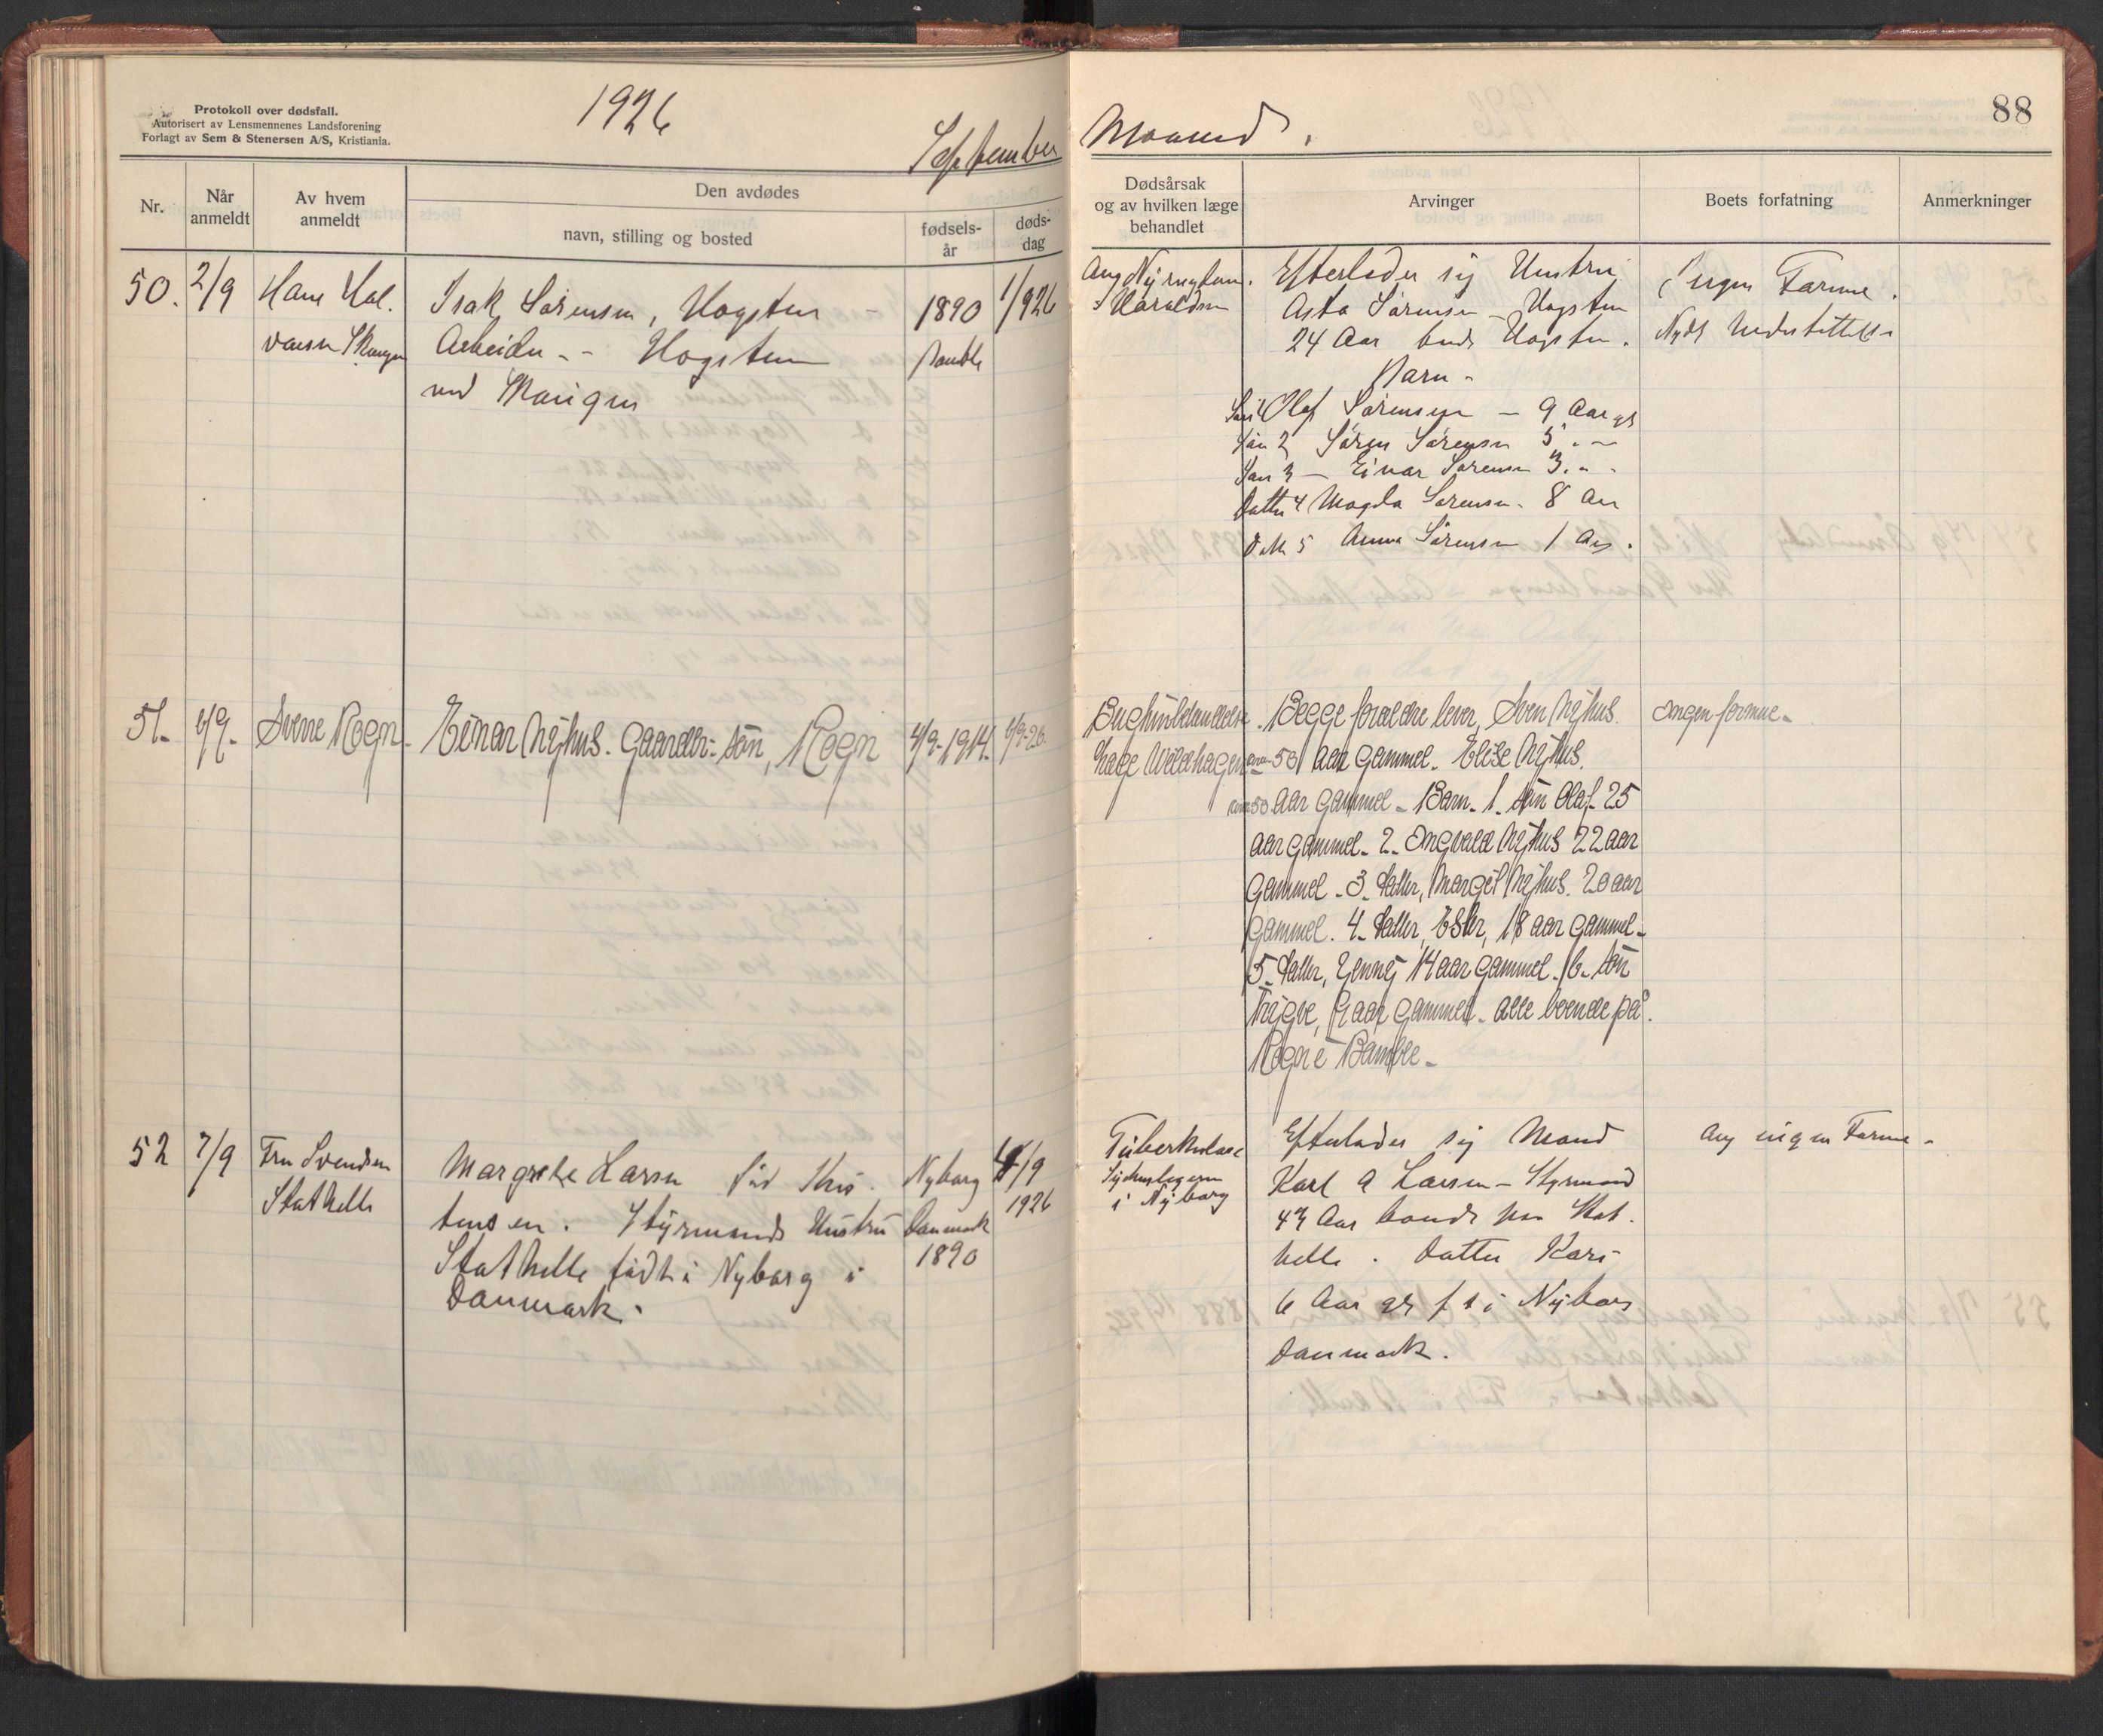 Protokoll over dødsfall.
Autorisert av Lensmennenes Landsforening
Forlagt av Sem & Stenersen A/S, Kristiania.
1926
September
Maaned.
88
Nr.
Når
anmeldt
Av hvem
anmeldt
Den avdødes
navn, stilling og bosted
fødsels-
år
døds-
dag
Dødsårsak
og av hvilken læge
behandlet
Arvinger
Boets forfatning
Anmerkninger
50.
2/9
Hans Hal.
vorsen Skaugen
Isak Sørensen, Hogsten
Arbeider - - Hogsten
ved Skaugen
1890
Bamble
1/926
Haraldsen
Efterlader sig Hustru
Asta Sørensen - Hogsten
24 Aar boende Hogsten.
Barn -
Søn 1 Olaf Sørensen - 9 Aar gl
Søn 2 Søren Sørensen 5 " -
Søn 3 - Einar Sørensen 3 " -
Datter 4 Magda Sørensen - 8 Aar
Datt 5 Anna Sørensen 1 Aar.
Ingen Formue.
Nydt Understøttelse
51.
6/9.
Sverre Rogn.
Einar Nyhus. Gaardbr. søn, Rogn
4/9-1914.
6/9-26.
Bughindebetændelse.
Læge Wildhagen
Begge forældre lever, Sven Nyhus.
50 aar gammel. Elise Nyhus.
50 aar gammel - Barn - 1. søn Olaf 25
aar gammel - 2. Ingvald Nyhus 22 aar
gammel - 3. datter, Margit Nyhus. 20 aar
gammel. 4. datter, Ester, 18 aar gammel -
5. datter, Jenny 14 aar gammel. 6. søn
Trygve, 9 aar gammel - alle boende på
Rogn i Bamble -
Ingen formue -
52
7/9
Fru Svendsen
Stathelle
Margrethe Larsen fød Kris-
tensen. Styrmands Hustru
Stathelle født i Nyborg i
Danmark.
Nyborg
Danmark
1890
4/9
1926
Tuberkulose
Sykehuslægen
i Nyborg
Efterlader sig Mand
Karl A Larsen - Styrmand
43 Aar boende paa Stat.
helle. Datter Kari
6 Aar gl f t i Nyborg
Danmark.
Ang ingen Formue -